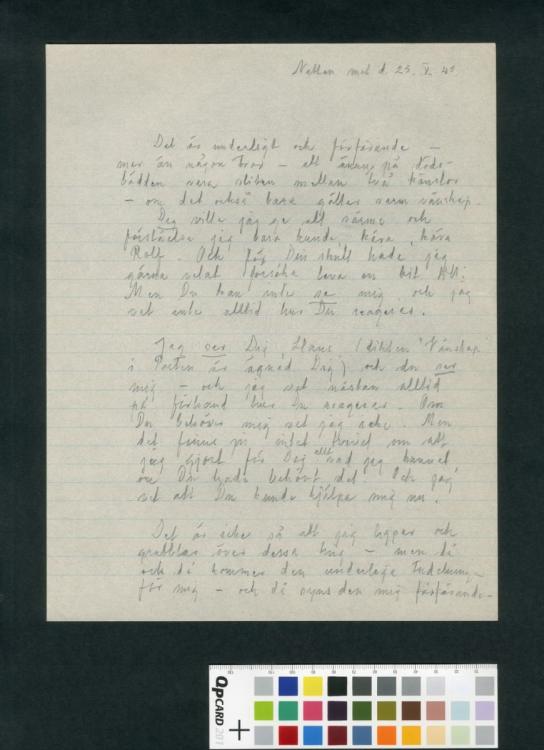 Natten mot d. 25. V. 45.
Det är underligt och förfärande –
mer än någon tror – att ännu på döds-
bädden vara sliten mellan två känslor
– om det också bara gäller varm vänskap.
Dig ville jag ge all värme och
förståelse jag bara kunde, kära, kära
Rolf. Och för Din skull hade jag
gärna velat försöka leva en bit till.
Men Du kan inte se mig och jag
vet inte alltid hur Du reagerar.
Jag ser Dig, Hans, (dikten "Vänskap"
i Porten är ägnad Dig) och du ser
mig – och jag vet nästan alltid
på förhand hur Du reagerar. Om
Du behöver mig vet jag icke. Men
det finns ju intet tvivel om att
jag gjort för Dig allt vad jag kunnat,
om Du hade behövt det. Och jag
vet att Du kunde hjälpa mig nu.
Det är säker så att jag ligger och
grubblar över dessa ting – men då
och då kommer den underliga
för mig – och då syns den mig förfärande –